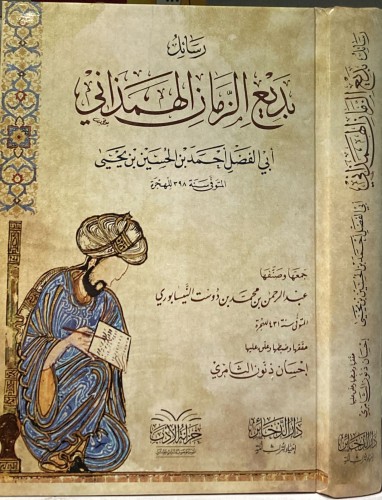 رسائل
بديع الزمان الهمذاني
أبي الفضل أحمد بن الحسين بن يحيى
المتوفى سنة ٣٩٨ للهجرة
جمعها وصنفها
عبد الرحمن بن محمد بن دوست النيسابوري
المتوفى سنة ٤٣١ للهجرة
حققها وضبطها وعلق عليها
إحسان ذنون الثامري
خزانة الأدب
دار الذخائر
رسائل
بديع الزمان الهمذاني
أبي الفضل أحمد بن الحسين بن يحيى
حققها وضبطها وعلق عليها
إحسان ذنون الثامري
دار الذخائر